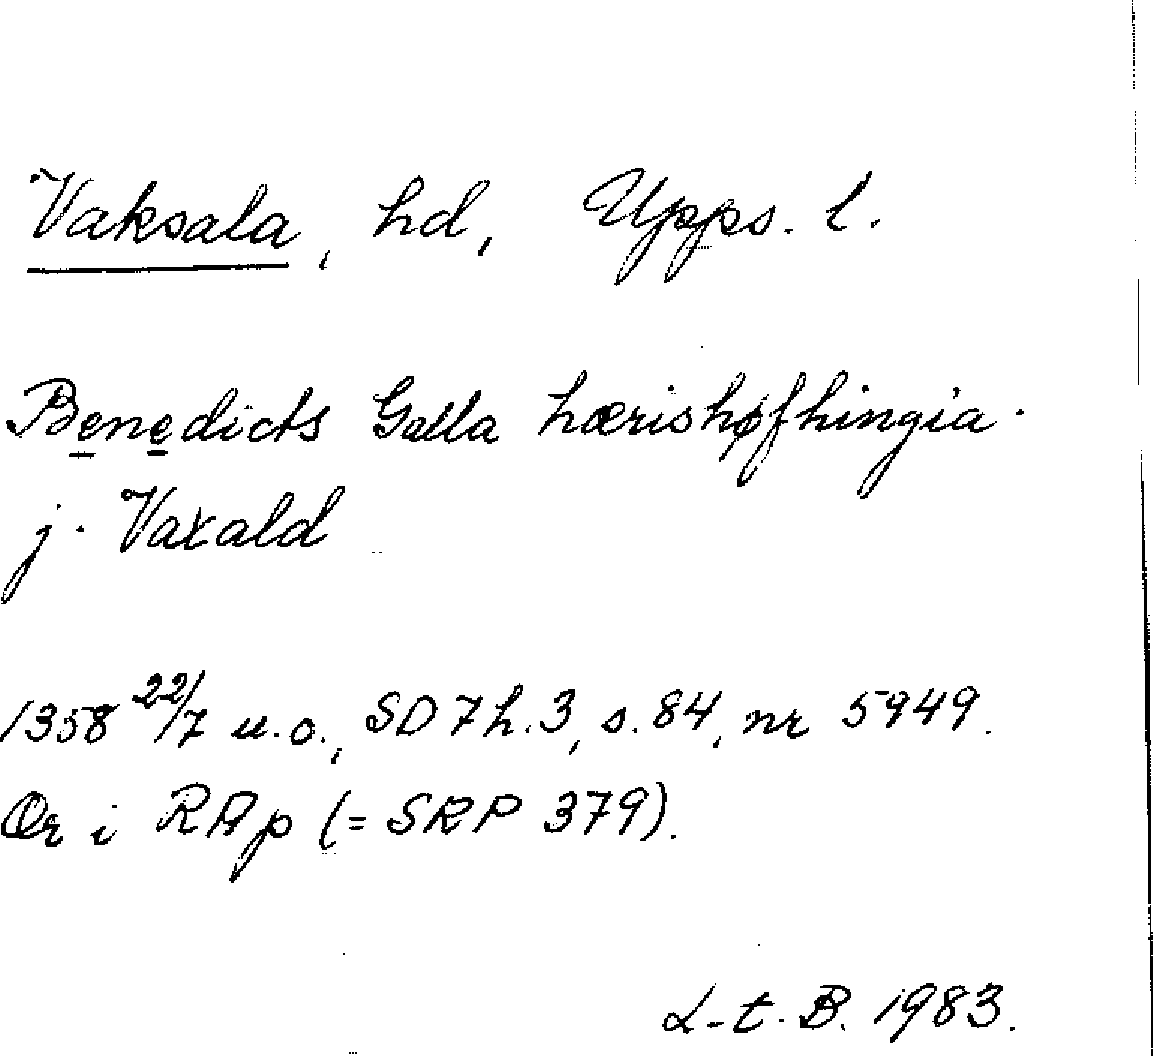 Vaksala, hd, Upps. l.
Benedicts Galla hærishøfhingia.
j. Vaxald
1358 22/7 u.o., SD 7 h. 3, s. 84, nr 5949.
Or i RAp (= SRP 379).
L-t. B. 1983.